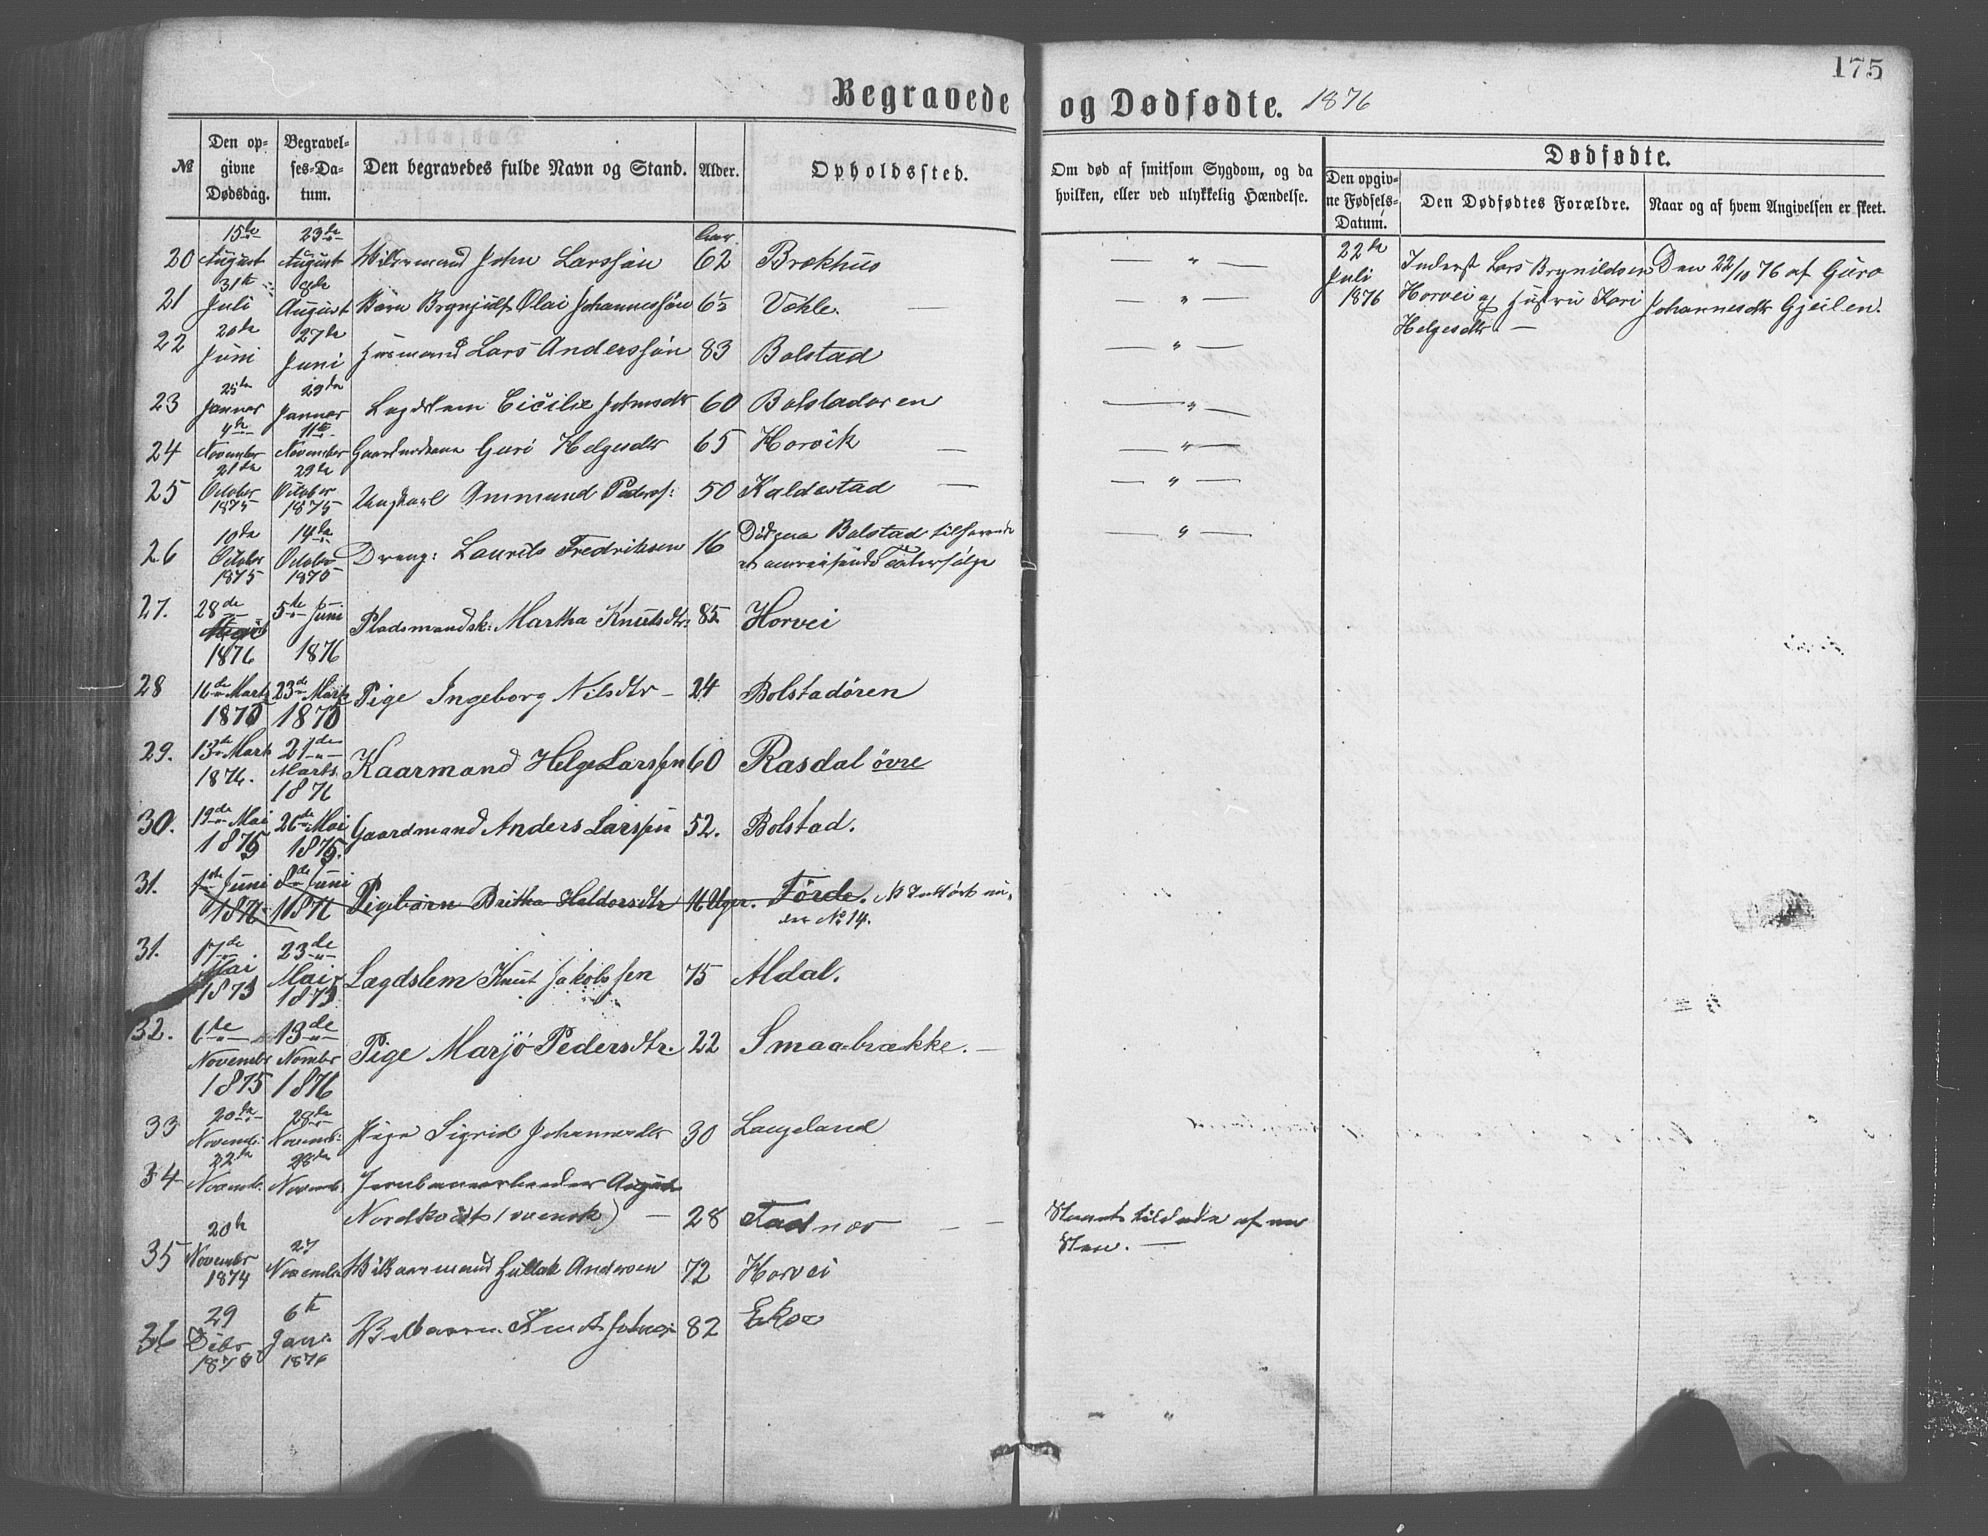 175
Begravede og Dødfødte. 1876
№
Den opgivne Dødsdag.
Begravelses-Datum.
Den begravedes fulde Navn og Stand.
Alder.
Opholdssted.
Om død af smitsom Sygdom, og da hvilken, eller ved ulykkelig Hændelse.
Dødfødte.
Den opgivne Fødsels-Datum.
Den Dødfødtes Forældre.
Naar og af hvem Angivelsen er skeet.
20 15de August 23de August John Larssøn 62 Brækhus — " —
21 31te Juli 8de August Barn Brynjulf Olai Johannessøn 6½ Væhle. — " —
22 20de Juni 27de Juni Husmand Lars Anderssøn 83 Bolstad — " —
23 25de Januar 29de Januar Lægdslem Cicilie Johnsdtr 60 Bolstadøren — " —
24 4de November 11te November Guri Helgesdtr 65 Horvik — " —
25 21de October 1875 29de October 1875 Ungkarl Ammund Peders: 50 Kaldestad — " —
26 10de October 1875 14de October 1875 Dreng: Laurits Fredriksen 16 Død paa Bolstad tilhørende
et omreisende Taterfølge — " —
27. 28de 1876 5te Juni 1876 Pladsmandsk: Martha Knutsdtr: 85 Horvei
28 16de Marts 1875 23de Marts 1875 Pige Ingeborg Nilsdtr — 24 Bolstadøren
29. 13de Marts 1876. 21de Marts 1876 Kaarmand Helge Larssen 60 Rasdal øvre
30. 19de Mai 1875 26de Mai 1875. Gaardmand Anders Larssen 52. Bolstad.
31. 1ste Juni 1876 8de Juni 1876 Pigebarn Britha Haldorsdtr 16 Uger. Førde. NB Indført un-
der No 14.
31. 17de Mai 1873 23de Mai 1873 Lægdslem Knut Jakobssen 75 Aldal.
32. 6de Novembr 1875 13de Novmbr 1876 Pige Marjo Pedersdtr. 22 Smaabrække. —
33 20de Novemb: 28de Novemb: Pige Sigrid Johannesdtr 30 Langeland
34 22de Novemb: 28de Novemb: Jernbanearbeider August
Nordkvist (svensk) — 28 Fadnæs — — Steen. —
35 20de Novembr 1874 27 Novembr Andersen 72 Horvei
36 29 Decbr 1875 6te Jan: 1876 Knut Johns: 82 Ekse
22de Juli 1876
Inderst Lars Brynildsen
Horvei og Hustru Kari
Helgesdtr —
Den 22/10 76 af Guro
Johannesdtr Gjeilen.